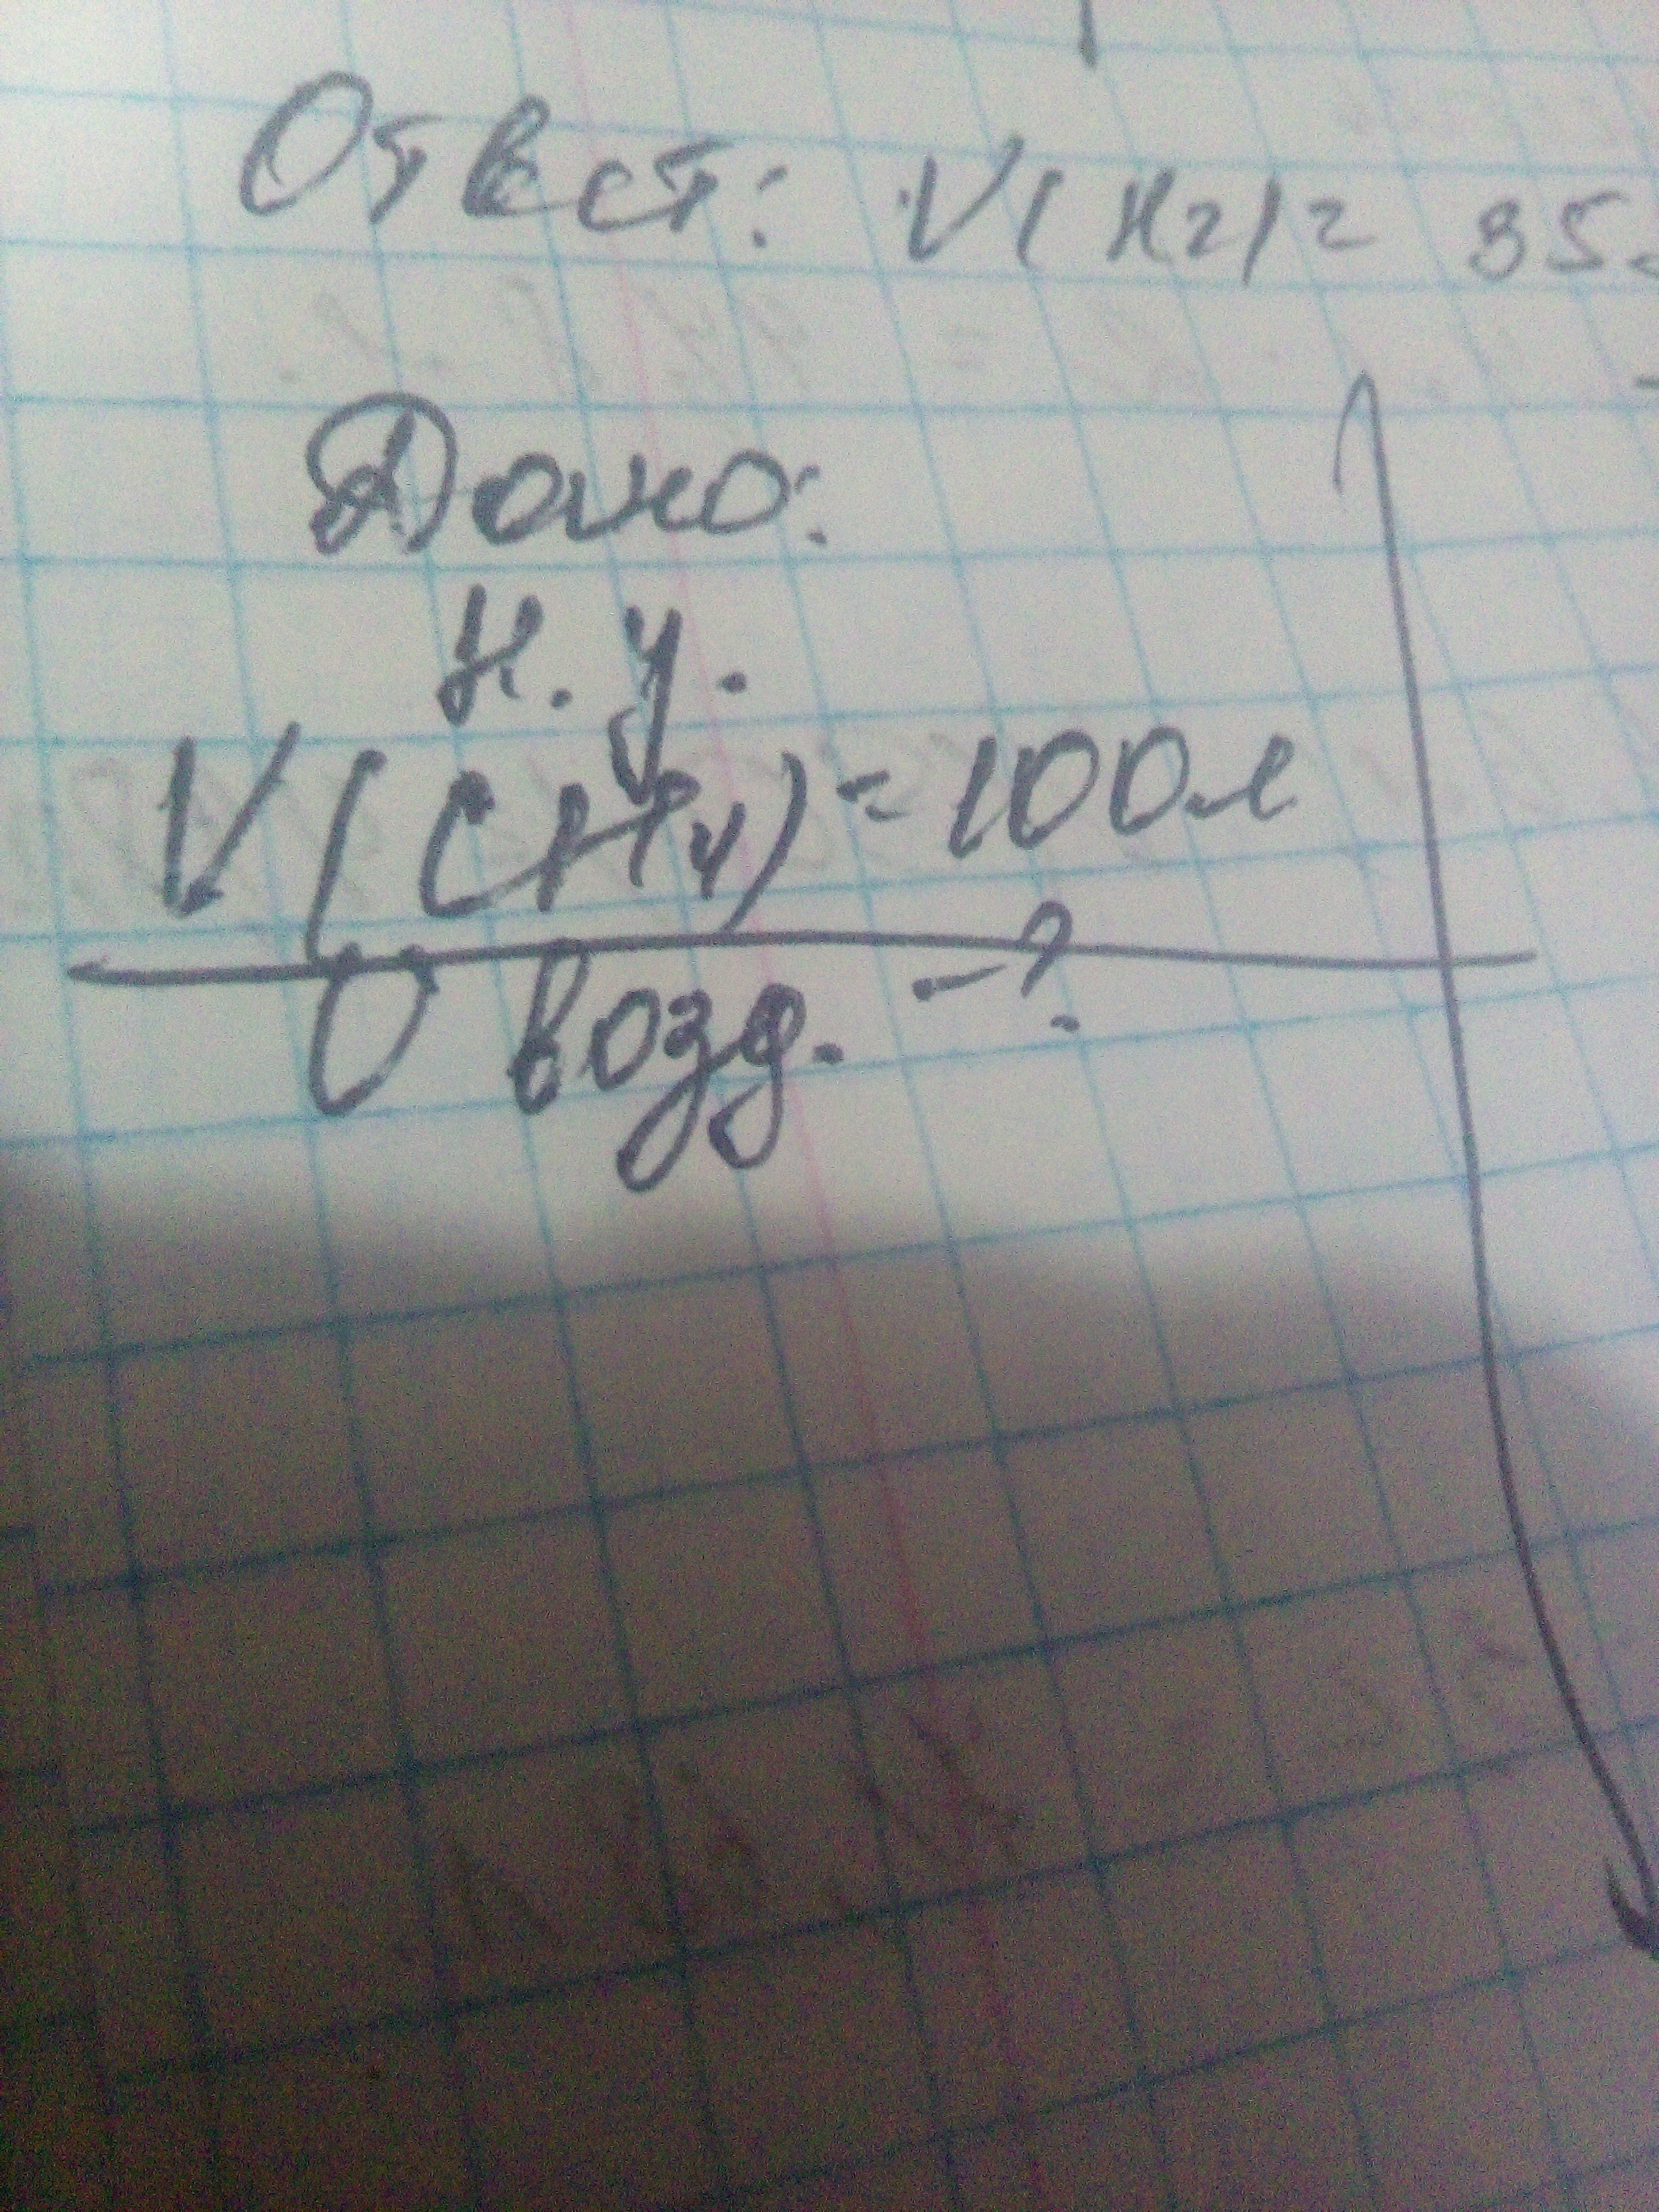 Ответ: V(H2)= 35
Дано:
н. у.
V(CH4)=100л
V возд. -?